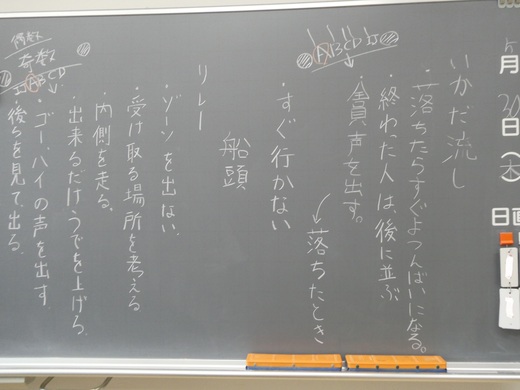 月
日
(木)
日直
いかだ流し
・落ちたらすぐよつんばいになる。
・終わった人は、後に並ぶ
・全員声を出す。
ABCD
・すぐ行かない
↙落ちたとき
船頭
リレー
・ゾーンを出ない。
・受け取る場所を考える
・内側を走る。
・出来るだけうでを上げる。
・ゴー、ハイの声を出す
・後ろを見て、出る。
偶数
奇数
ABCD